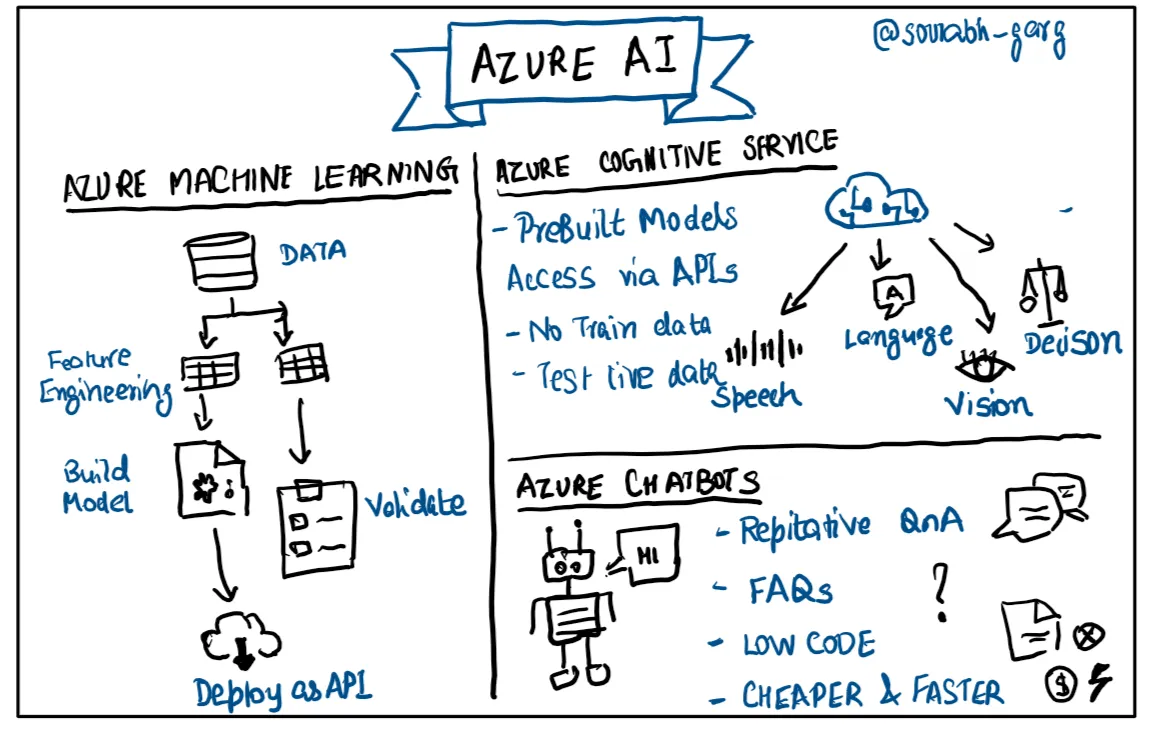 AZURE AI
@sourabh_garg
AZURE MACHINE LEARNING
DATA
Feature
Engineering
Build
Model
Validate
Deploy as API
AZURE COGNITIVE SERVICE
- PreBuilt Models
Access via APIs
- No Train data
- Test live data
Speech
A
Language
Vision
Decison
AZURE CHATBOTS
HI
- Repitative QnA
- FAQs ?
- LOW CODE
- CHEAPER & FASTER
$